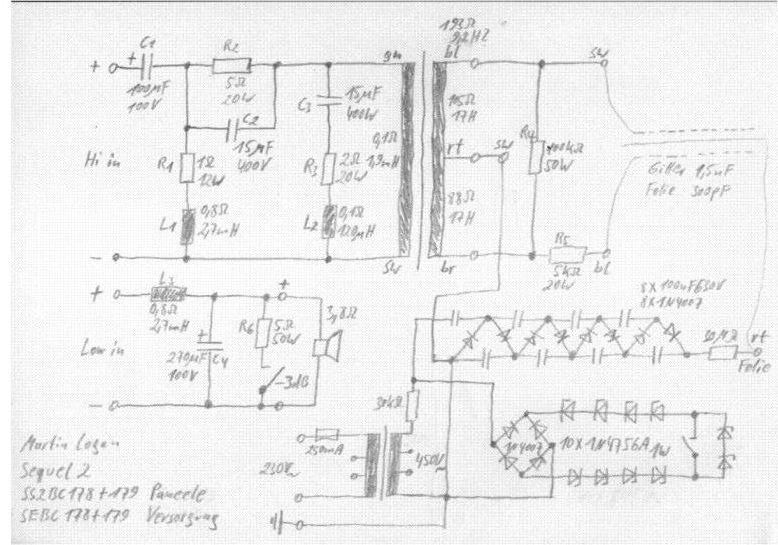 C1
+
100µF
100V
R2
5Ω
20W
C2
15µF
400V
Hi in
R1
1Ω
12W
L1
0,8Ω
2,7mH
C3
15µF
400V
R3
2Ω
20W
L2
0,1Ω
120µH
gn
sw
0,1Ω
193Ω
bl
105Ω
17H
rt
88Ω
17H
br
sw
R4
100kΩ
50W
R5
5kΩ
20W
sw
bl
Gitter 1,5nF
Folie 300pF
+
L3
0,8Ω
2,7mH
Low in
+
270µF
100V
C4
R6
5Ω
50W
-3dB
+
8X100nF650V
8X1N4007
rt
Folie
30kΩ
250mA
230V~
450V~
1N4007
10X1N4756A
1W
Martin Logan
Sequel 2
SS2BC178+179 Paneele
SEBC178+179 Versorgung